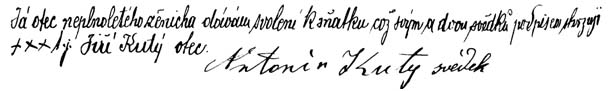 Já otec neplnoletého ženicha dávám svolení k sňatku což svým a dvou svědků podpisem stvrzuji
+++ Jiří Kutý otec.
Antonín Kuty svědek